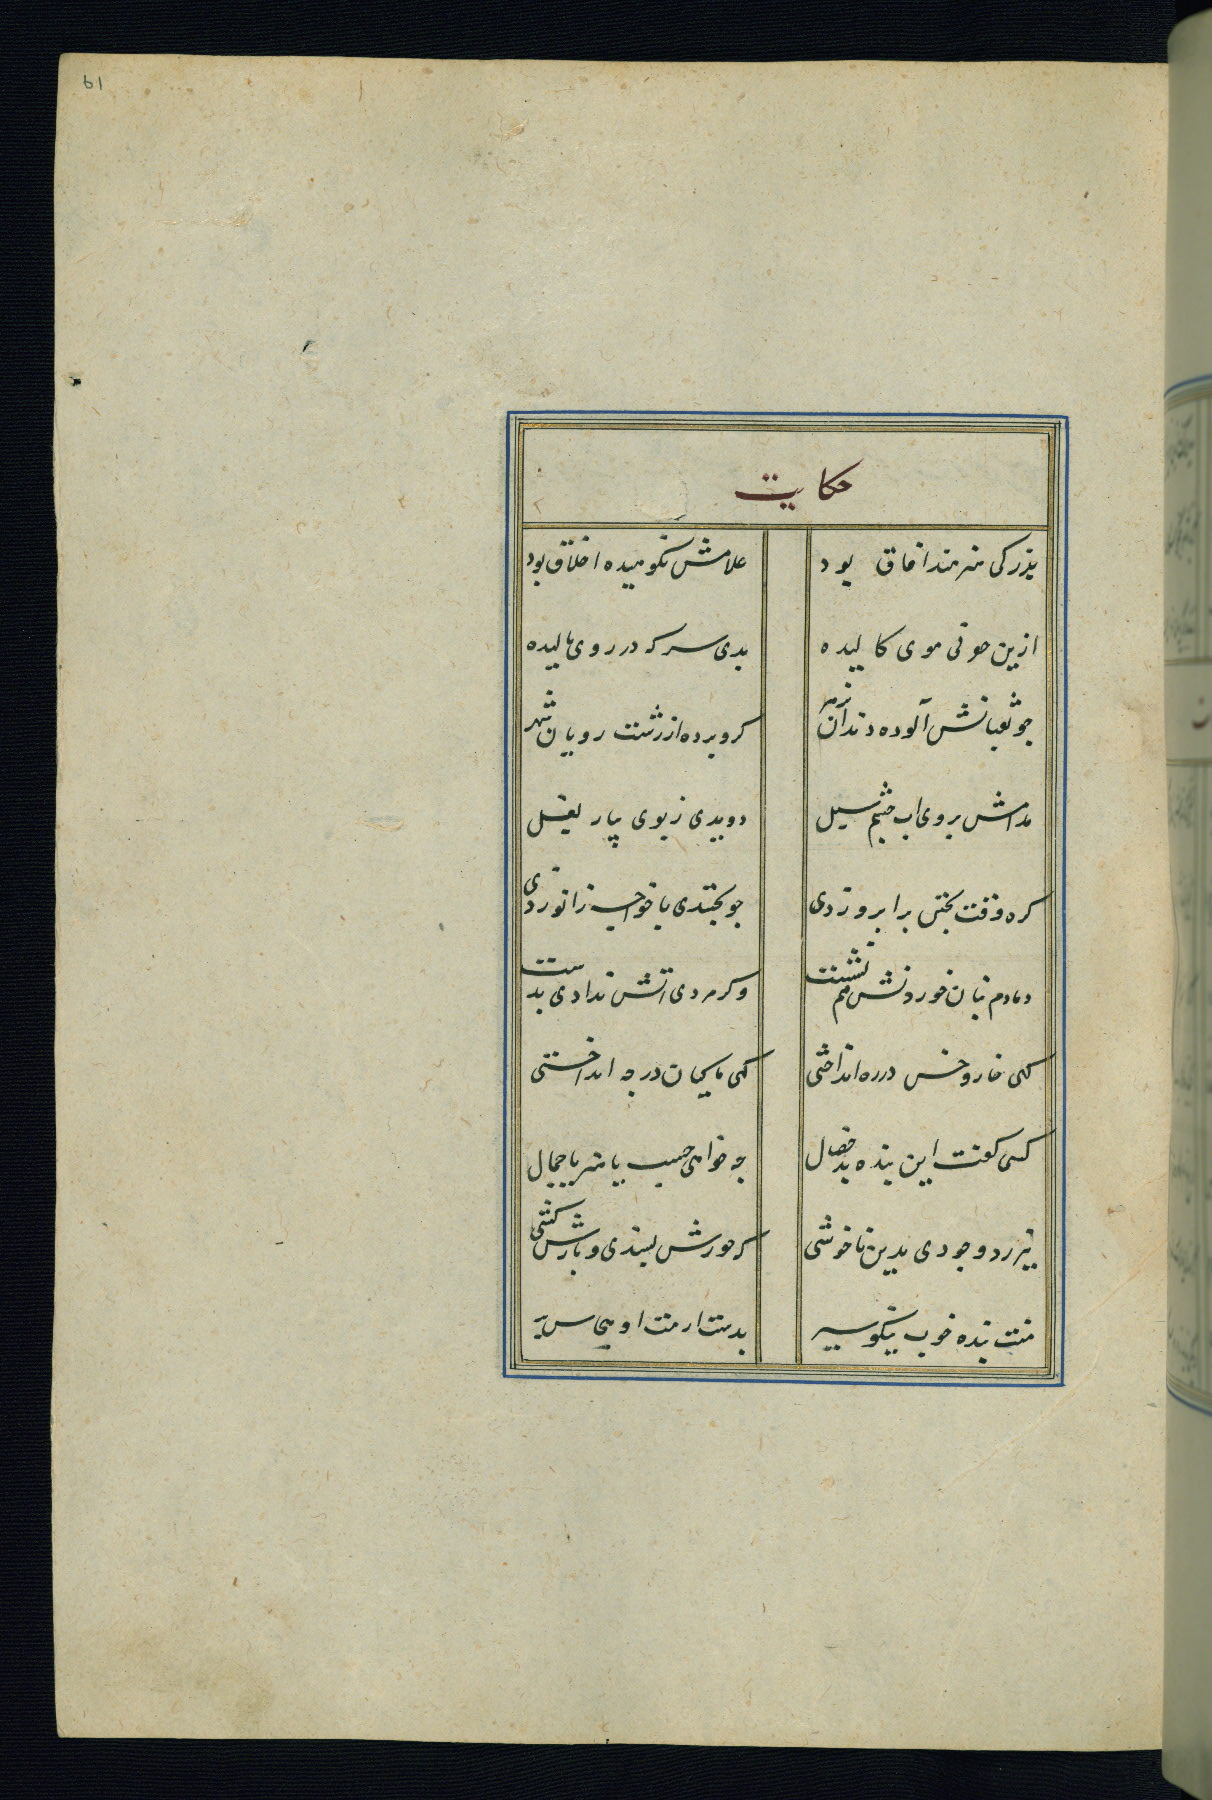 61
حکایت
بزرکی هنرمند افاق بود
غلامش نکوهیده اخلاق بود
ازین خوفی موی کالیده
بدی سرکه در روی مالیده
چو ثعبانش آلوده دندان زهر
کرو برده از زشت رویان شهر
مدامش بروی اب چشم سبل
دویدی ز بوی پیاز بغل
کره وقت پختن بر ابرو زدی
چو پختندی با خواجه زانو زدی
دمادم بنان خوردنش هم نشست
وکر مردی اتش ندادی بدست
کهی خار و خس در ره انداختی
کهی ماکیان در چه انداختی
کسی کفت این بنده بد خصال
چه خواهی حسب یا هنر یا جمال
نیرزد وجودی بدین ناخوشی
که جورش پسندی و بارش کشی
منت بنده خوب نیکو سیر
بدست ارمت او